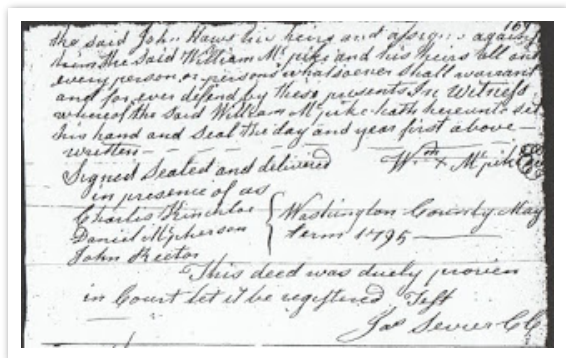 169
the said John Haws his heirs and assigns against
him the said William Mcpike and his heirs all and
every person or persons whatsoever shall warrant
and for ever defend by these presents In Witness
whereof the said William Mcpike hath hereunto set
his hand and Seal the day and year first above
written
Signed Sealed and delivered Wm x Mcpike
in presence of us
Charles Kinchloe
Daniel Mcpherson
John Rector
Washington County May
term 1795
This deed was duely proven
in Court let it be registered Test
Jas Sevier CC